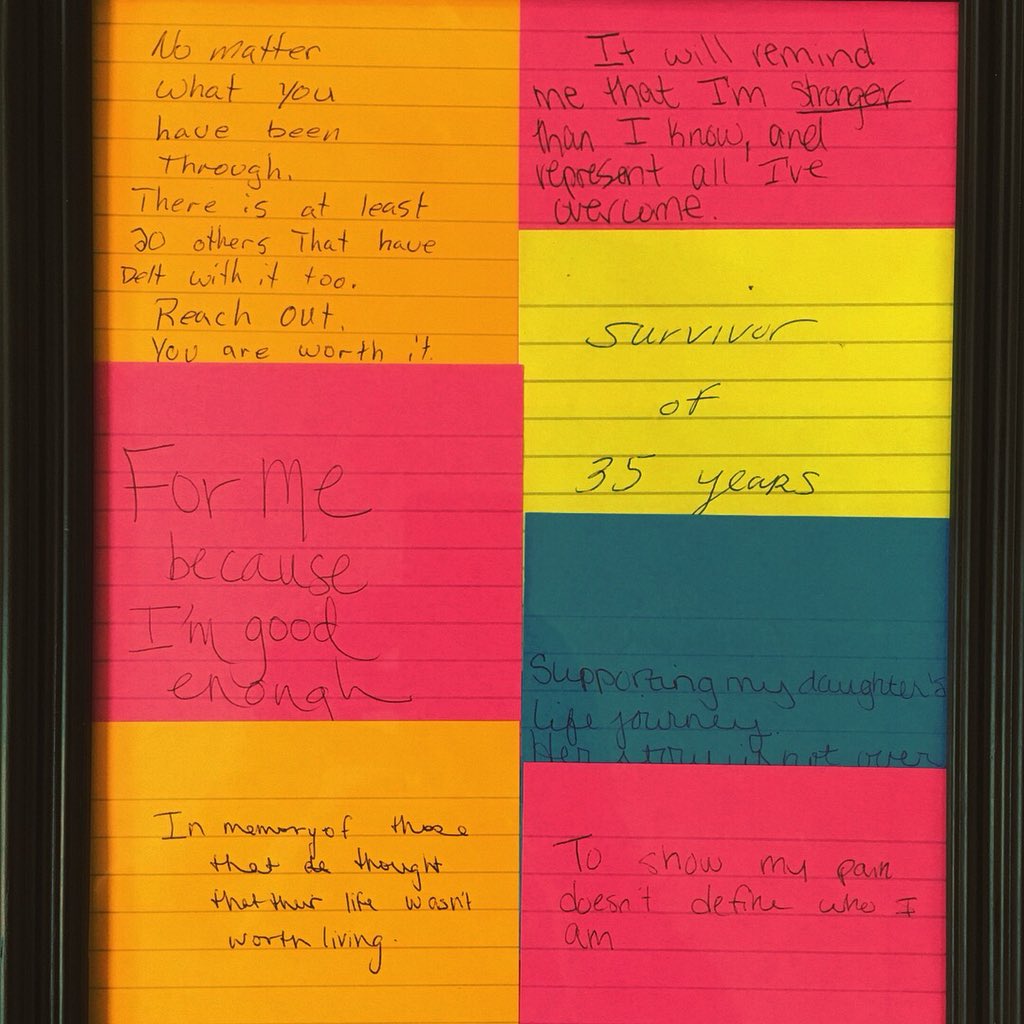 No matter
what you
have been
Through.
There is at least
20 others That have
Delt with it too.
Reach out.
You are worth it.
For Me
because
I'm good
enough
In memory of those
that thought
that their life wasn't
worth living.
It will remind
me that I'm stronger
than I know, and
represent all I've
overcome.
Survivor
of
35 years
Supporting my daughter's
life journey.
Her story is not over
To show my pain
doesn't define who I
am